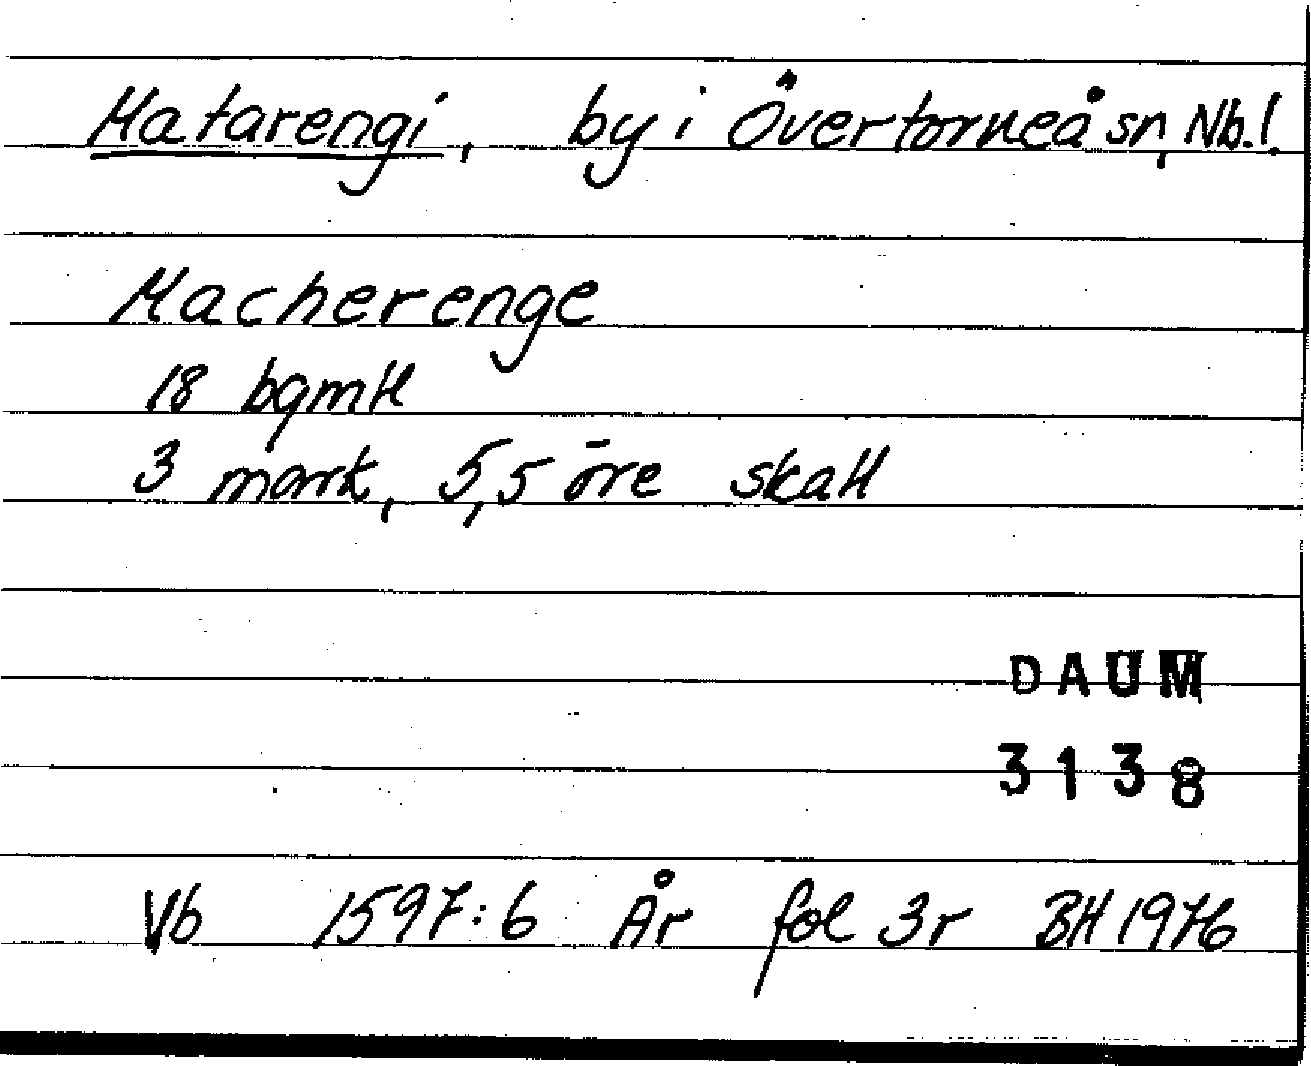 Matarengi, by i Övertorneå sn, Nb.l.
Macherenge
18 bgmtl
3 mark, 5,5 öre skatt
DAUM
3138
Vb 1597:6 År fol 3r BH 1976